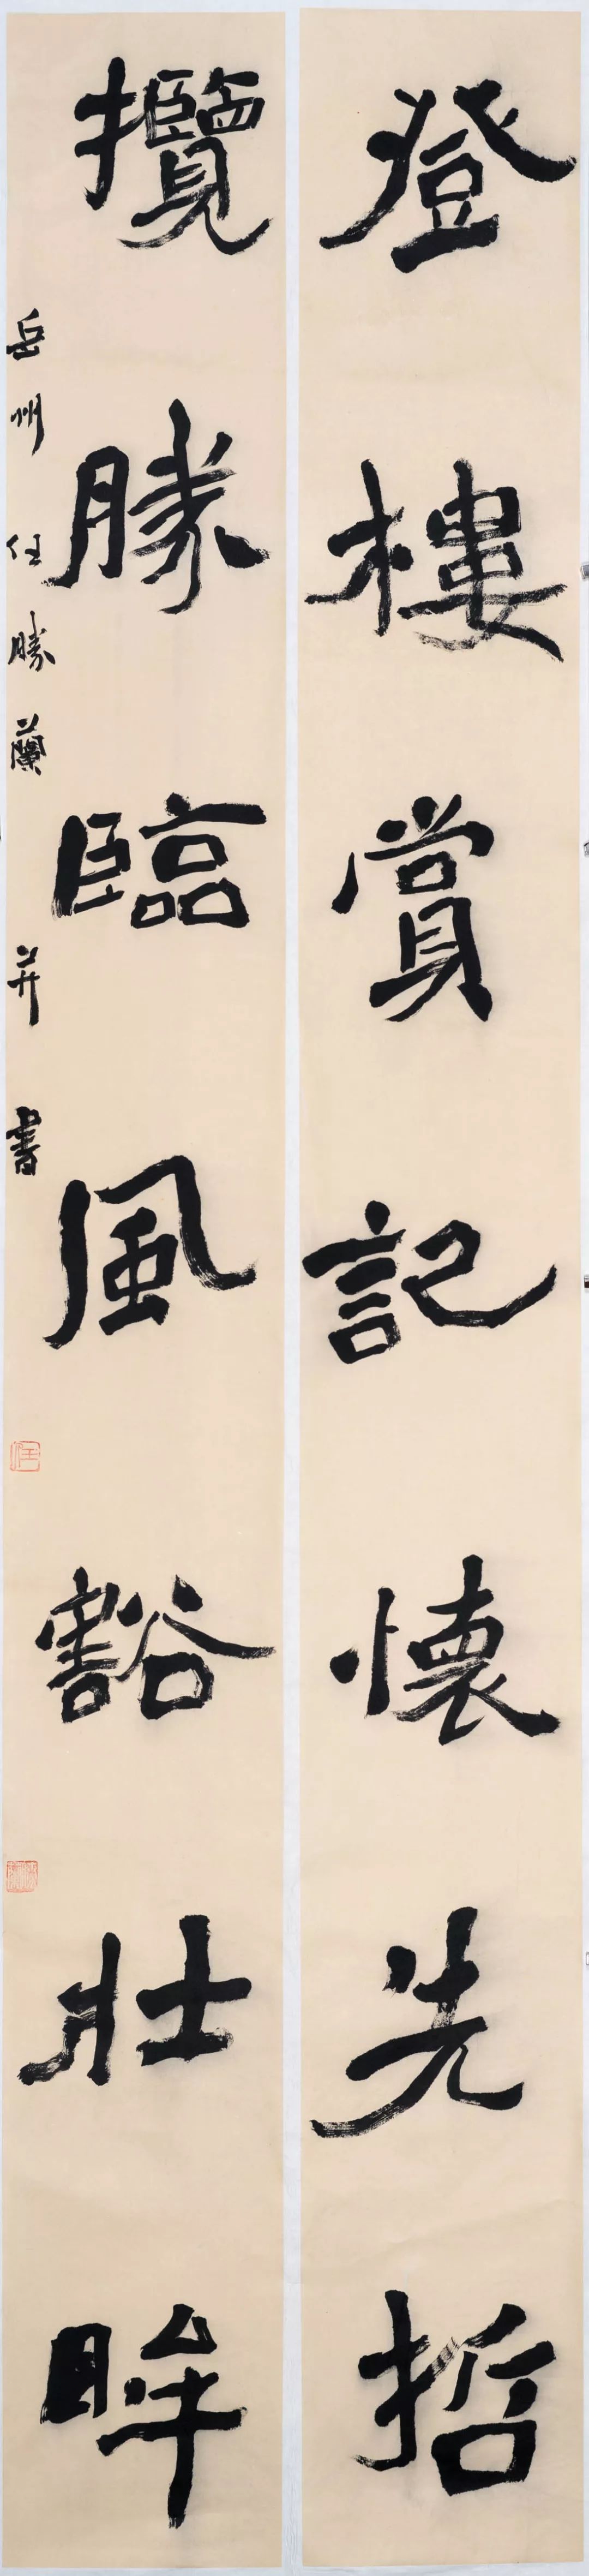 登樓賞記懷先哲
攬勝臨風豁壯眸
岳州任勝蘭并書